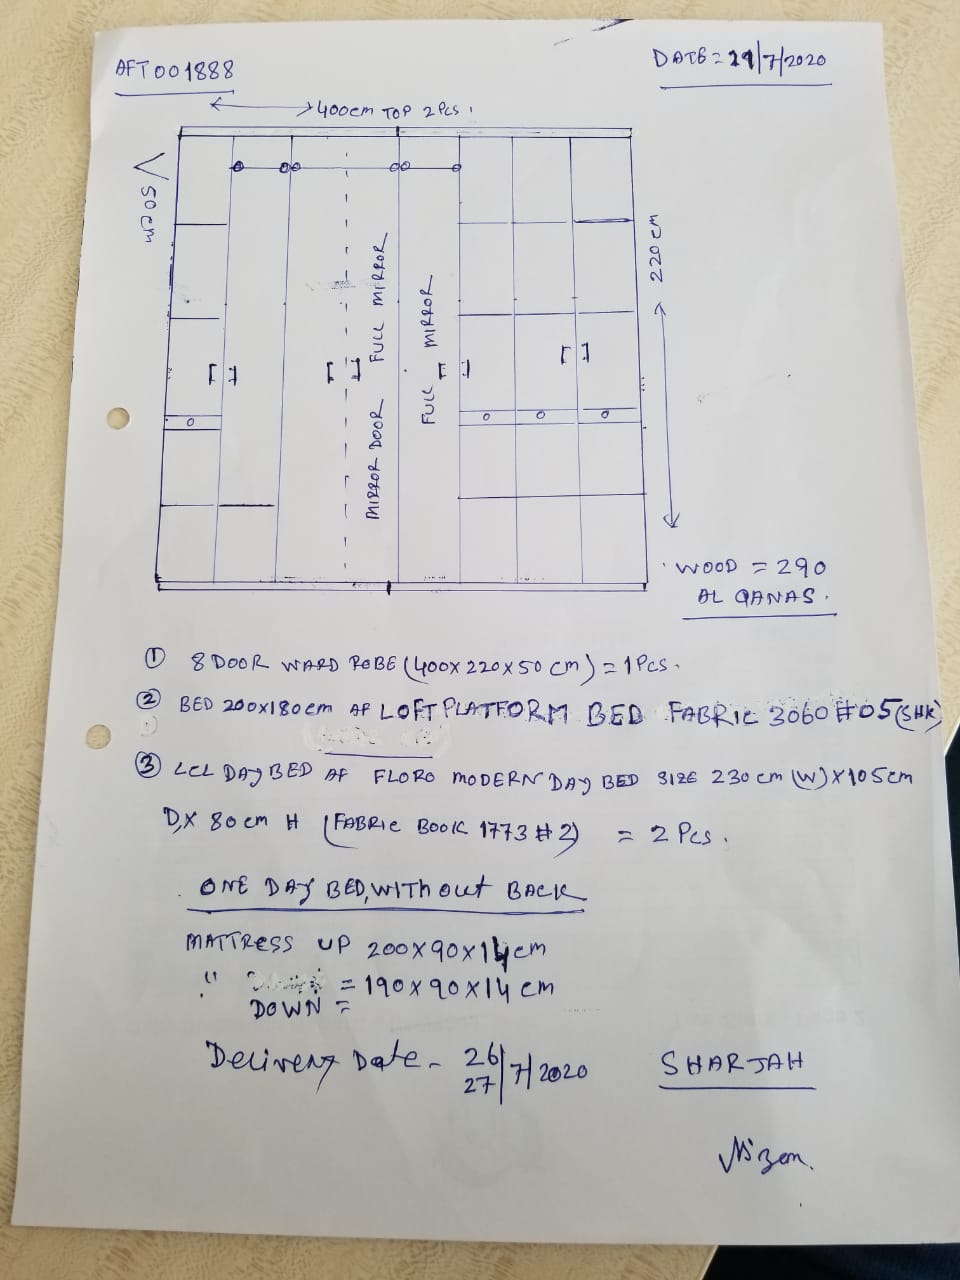 AFT001888
DATE = 19/7/2020
400cm TOP 2 Pcs
50cm
220 cm
MIRROR DOOR FULL MIRROR
FULL MIRROR
WOOD = 290
AL QANAS.
① 8 DOOR WARD ROBE (400 x 220 x 50 cm) = 1 Pcs.
② BED 200x180cm AF LOFT PLATFORM BED FABRIC 3060 #05 (SHK)
③ LCL DAY BED AF FLORO MODERN DAY BED SIZE 230 cm (W) X 105 cm
D, X 80 cm H (FABRIC BOOK 1773 # 2) = 2 Pcs.
ONE DAY BED, WITHout BACK
MATTRESS UP 200 X 90 X 14 cm
" = 190 X 90 X 14 cm
DOWN =
Delivery Date - 26/27/7/2020
SHARJAH
Nizam.